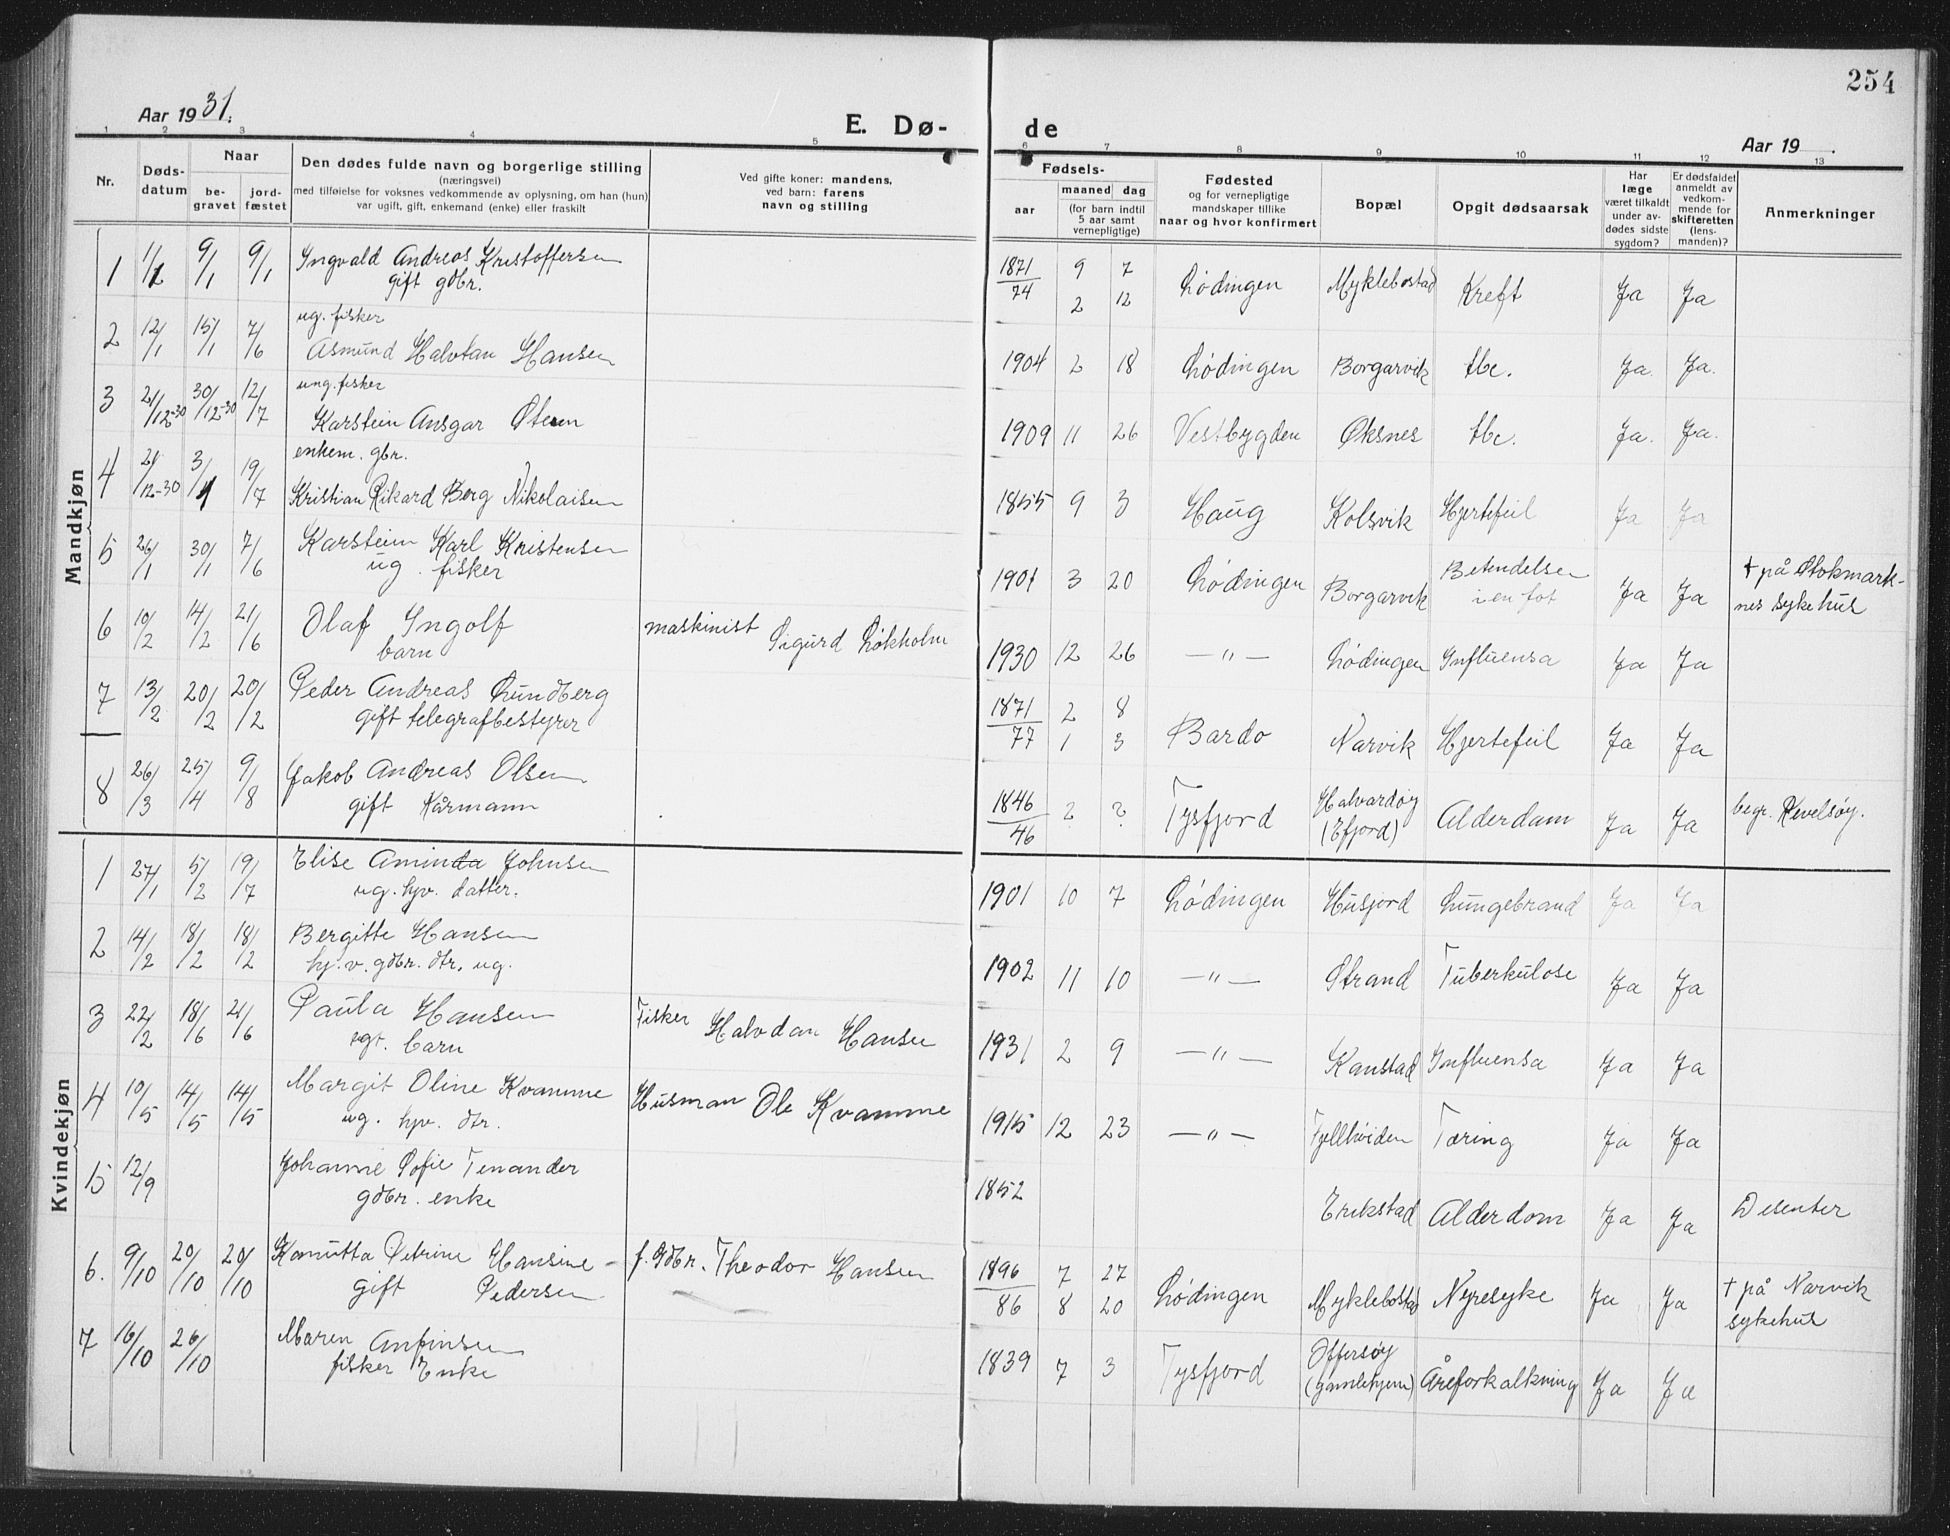 254
Aar 1931.
E. Dø-
de
Aar 19 .
1 2 3 4 5 6 7 8 9 10 11 12 13
Nr.
Døds-
datum
Naar
be-
gravet
jord-
fæstet
Den dødes fulde navn og borgerlige stilling
(næringsvei)
med tilføielse for voksnes vedkommende av oplysning, om han (hun)
var ugift, gift, enkemand (enke) eller fraskilt
Ved gifte koner: mandens,
ved barn: farens
navn og stilling
Fødsels-
aar
maaned dag
(for barn indtil
5 aar samt
vernepligtige)
Fødested
og for vernepligtige
mandskaper tillike
naar og hvor konfirmert
Bopæl
Opgit dødsaarsak
Har
læge
været tilkaldt
under av-
dødes sidste
sygdom?
Er dødsfaldet
anmeldt av
vedkom-
mende for
skifteretten
(lens-
manden)?
Anmerkninger
Mandkjøn
1 1/1 9/1 9/1 Ingvald Andreas Kristoffersen 1871/74 9 7 Lødingen Myklebostad Kreft Ja Ja
gift gdbr. 2 12
ug. fisker
2 12/1 15/1 7/6 Asmund Halvdan Hansen 1904 2 18 Lødingen Borgarvik tbc. Ja. Ja.
ung. fisker
3 21/12-30 30/12-30 12/7 Karstein Ansgar Steen 1909 11 26 Vestbygden Øksnes tbc. Ja. Ja.
enkem. gbr.
4 21/12-30 3/1 19/7 Kristian Rikard Berg Nikolaisen 1855 9 3 Haug Kolsvik Hjertefeil Ja Ja
5 26/1 30/1 7/6 Karstein Karl Kristensen 1901 3 20 Lødingen Borgarvik Betendelse Ja Ja † på Stokmark-
ug. fisker i en fot nes sykehus
6 10/2 14/2 21/6 Olaf Ingolf maskinist Sigurd Løkholm 1930 12 26 —"— Lødingen Influensa Ja Ja
barn
7 13/2 20/2 20/2 Peder Andreas Lundberg 1871/77 2 8 Bardo Narvik Hjertefeil Ja Ja
gift telegrafbestyrer 1 3
8 26/3 25/4 9/8 Jakob Andreas Olsen 1846/46 2 ? Tysfjord Halvardøy Alderdom Ja Ja begr. Revelsøy.
gift Kårmann (Efjord)
Kvindekjøn
1 27/1 5/2 19/7 Elise Aminda Johnsen 1901 10 7 Lødingen Husjord Lungebrand Ja Ja
ug. hjv. datter.
2 14/2 18/2 18/2 Bergitte Hansen 1902 11 10 —"— Strand Tuberkulose Ja Ja
hj. v. gdbr. dtr. ug.
3 22/2 18/6 21/6 Paula Hansen Fisker Halvdan Hansen 1931 2 9 —"— Kanstad Influensa Ja Ja
barn
4 10/5 14/5 14/5 Margit Oline Kvamme Husman Ole Kvamme 1915 12 23 —"— Fjellhøiden Tæring Ja Ja
ug. hjv. dtr.
5 12/9 Johanne Sofie Tenander 1852 Erikstad Alderdom Ja Ja Disenter
gdbr. enke
6. 9/10 20/10 20/10 Kanutta Petrine Hansine - f. Gdbr. Theodor Hansen 1896/86 7 27 Lødingen Myklebostad Nyresyke Ja Ja † på Narvik
gift Pedersen 8 20 sykehus
7 16/10 26/10 Maren Anfinsen 1839 7 3 Tysfjord Offersøy Åreforkalkning Ja Ja
fisker Enke (gamlehjem)